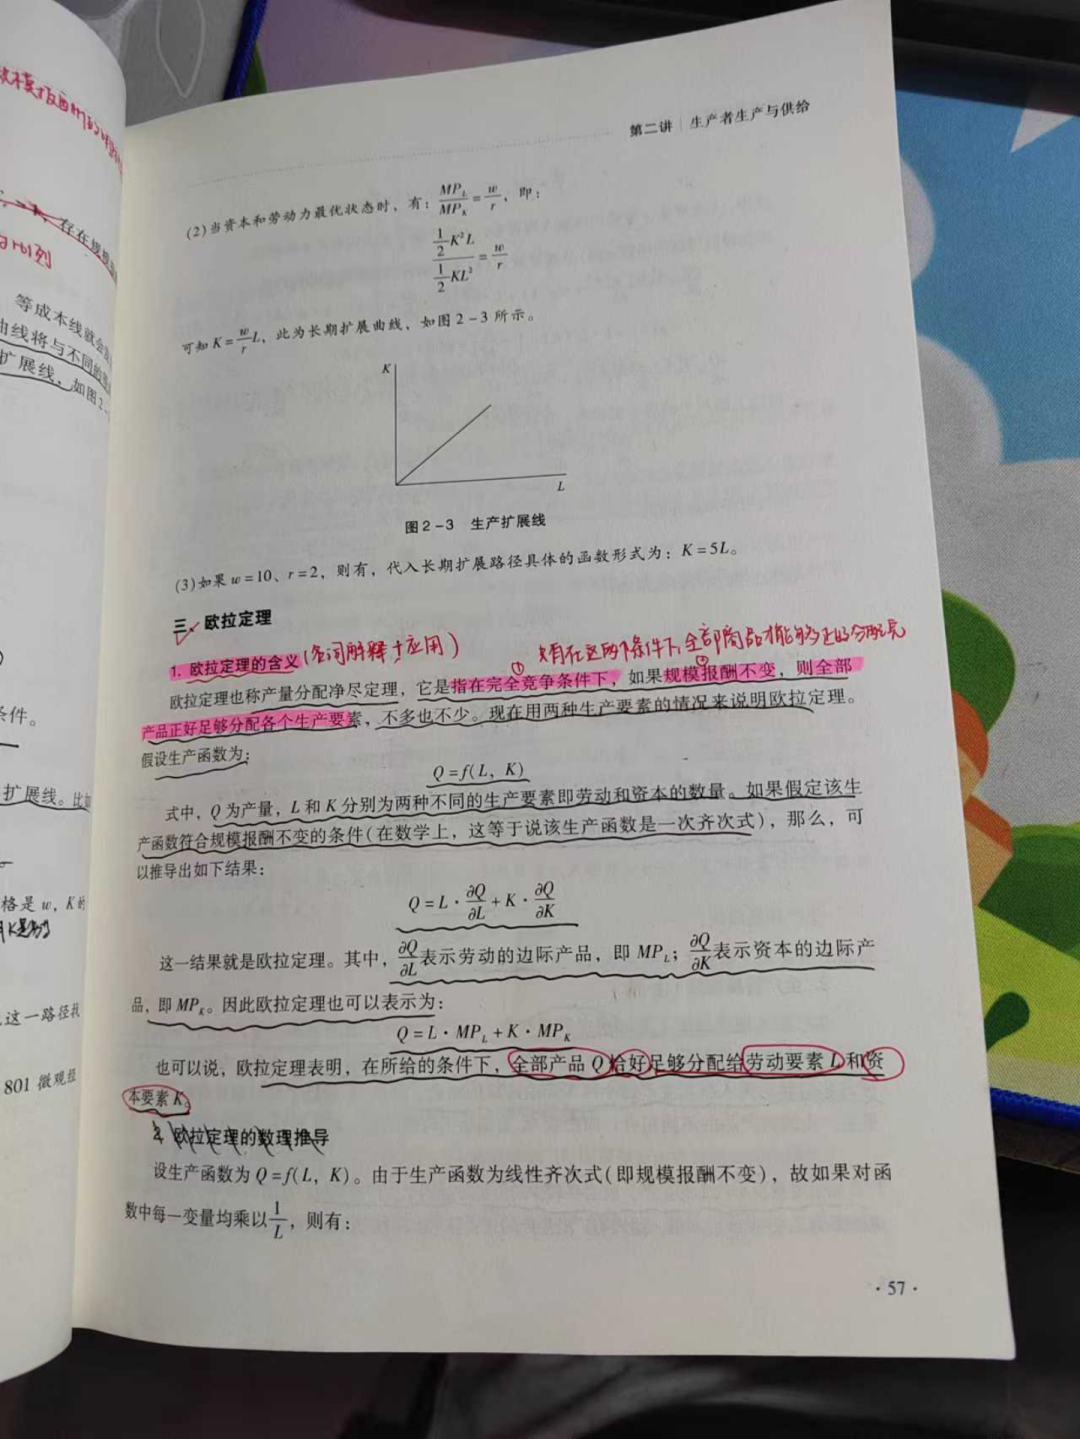 存在规模
等成本线就会
曲线将与不同的
扩展线，如图2-
条件。
扩展线。比如
格是w，K的
这一路径找
801 微观经
第二讲 | 生产者生产与供给
(2)当资本和劳动力最优状态时，有：MP_L/MP_K = w/r，即：
(1/2 K²L)/(1/2 KL²) = w/r
可知K = w/r L，此为长期扩展曲线，如图2-3所示。
K
L
图2-3 生产扩展线
(3)如果w=10、r=2，则有，代入长期扩展路径具体的函数形式为：K=5L。
三、欧拉定理
1. 欧拉定理的含义 (名词解释+应用)
① 只有在这两个条件下，全部商品才能够正好分配完
②
欧拉定理也称产量分配净尽定理，它是指在完全竞争条件下，如果规模报酬不变，则全部
产品正好足够分配各个生产要素，不多也不少。现在用两种生产要素的情况来说明欧拉定理。
假设生产函数为：
Q=f(L，K)
式中，Q为产量，L和K分别为两种不同的生产要素即劳动和资本的数量。如果假定该生
产函数符合规模报酬不变的条件(在数学上，这等于说该生产函数是一次齐次式)，那么，可
以推导出如下结果：
Q=L·∂Q/∂L+K·∂Q/∂K
这一结果就是欧拉定理。其中，∂Q/∂L表示劳动的边际产品，即MP_L；∂Q/∂K表示资本的边际产
品，即MP_K。因此欧拉定理也可以表示为：
Q=L·MP_L+K·MP_K
也可以说，欧拉定理表明，在所给的条件下，全部产品Q恰好足够分配给劳动要素L和资
本要素K。
2. 欧拉定理的数理推导
设生产函数为Q=f(L，K)。由于生产函数为线性齐次式(即规模报酬不变)，故如果对函
数中每一变量均乘以1/L，则有：
·57·